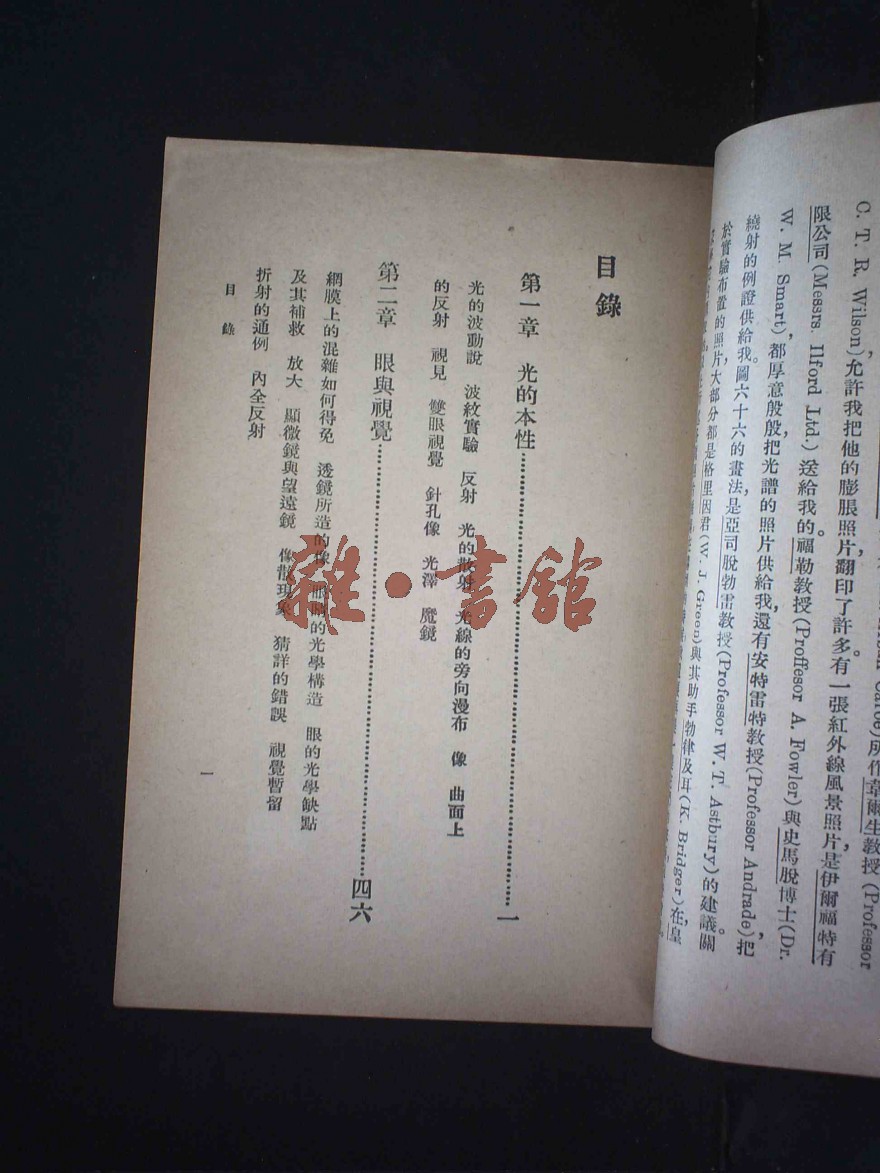 C. T. R. Wilson)允許我把他的膨脹照片,翻印了許多。有一張紅外線風景照片,是伊爾福特有
限公司(Messrs. Ilford Ltd.)送給我的。福勒教授(Proffesor A. Fowler)與史馬脫博士(Dr.
W. M. Smart),都厚意殷殷,把光譜的照片供給我,還有安特雷特教授(Professor Andrade),把
繞射的例證供給我。圖六十六的畫法,是亞司脫勃雷教授(Professor W. T. Astbury)的建議。關
於實驗布置的照片,大部分都是格里因君(W. J. Green)與其助手勃律及耳(K. Bridger)在皇
目錄
第一章 光的本性 一
光的波動說 波紋實驗 反射 光的散射 光線的旁向漫布 像 曲面上
的反射 視見 雙眼視覺 針孔像 光澤 魔鏡
第二章 眼與視覺 四六
網膜上的混雜如何得免 透鏡所造的像 眼睛的光學構造 眼的光學缺點
及其補救 放大 顯微鏡與望遠鏡 像散現象 猜詳的錯誤 視覺暫留
折射的通例 內全反射
目錄
一
雜·書館